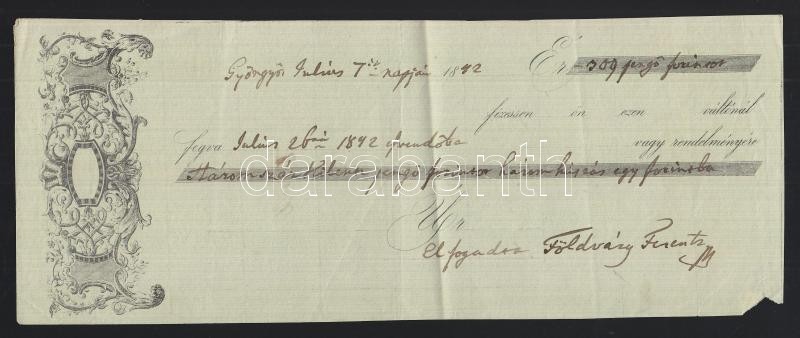 Gyöngyös Julius 7ik napján 1842 Ér 309 pengő forintot
fizessen ön ezen váltónál
fogva Julius 26án 1842 esztendőbe vagy rendelményére
Három száz kilentz pengő forintot három húszas egy forintba
Úr
elfogadva Földváry Ferentz
darabanth